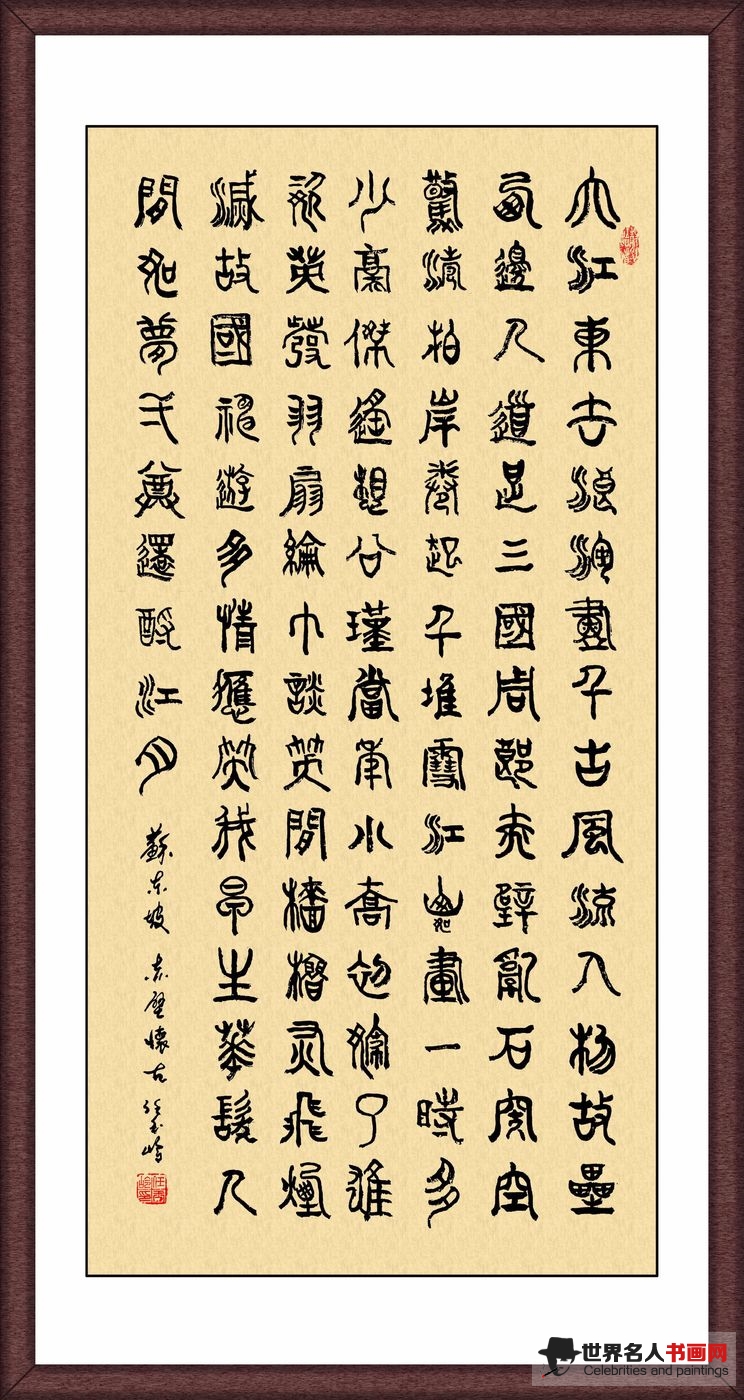 大江東去浪淘盡千古風流人物故壘
西邊人道是三國周郎赤壁亂石穿空
驚濤拍岸卷起千堆雪江山如畫一時多
少豪傑遙想公瑾當年小喬初嫁了雄
姿英發羽扇綸巾談笑間檣櫓灰飛煙
滅故國神遊多情應笑我早生華髮人
間如夢弌尊還酹江月
蘇东坡 赤壁懷古 任玉岭
世界名人书画网
Celebrities and paintings